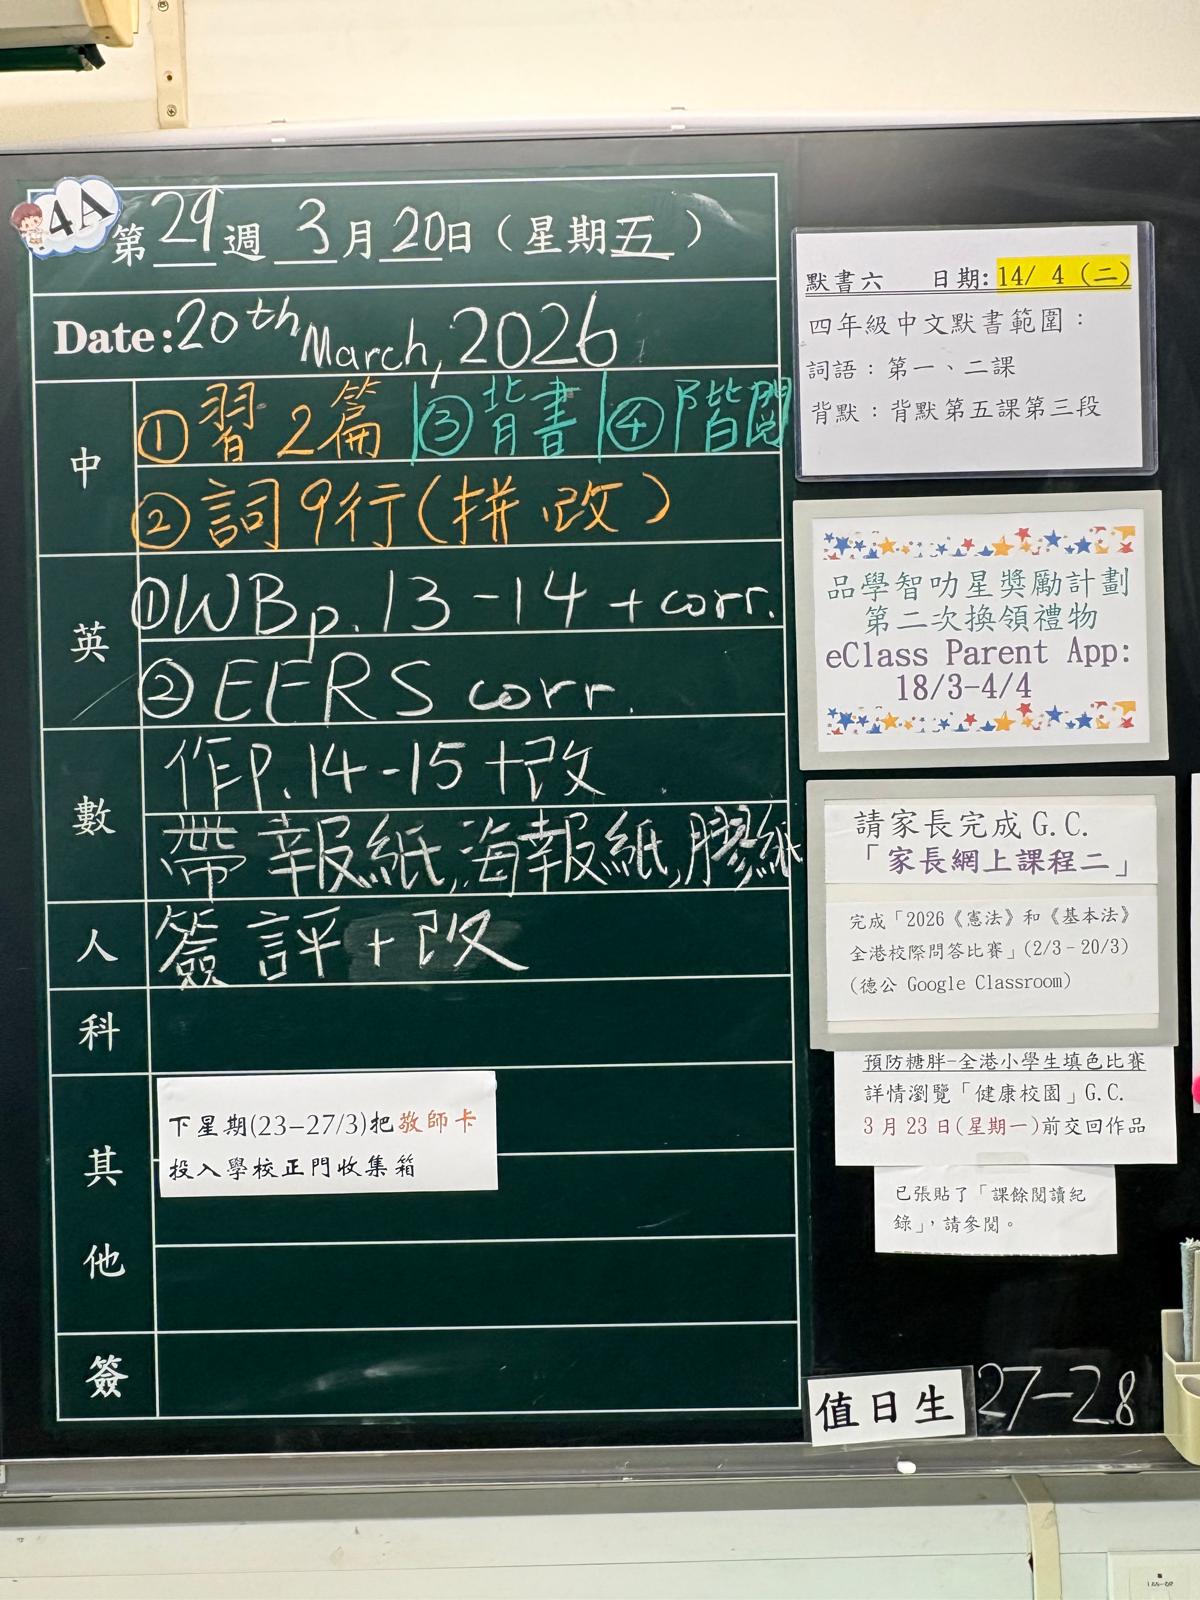 4A
第 29 週 3 月 20 日（星期五）
Date: 20th March, 2026
中
① 習 2篇 | ③ 背書 | ④ 階閱
② 詞9行(拼,改)
英
① WB p. 13-14 + corr.
② EERS corr.
數
作P.14-15+改
帶報紙,海報紙,膠紙
人
簽評+改
科
其他
下星期(23-27/3)把敬師卡
投入學校正門收集箱
簽
默書六 日期: 14/ 4 (二)
四年級中文默書範圍：
詞語：第一、二課
背默：背默第五課第三段
品學智叻星獎勵計劃
第二次換領禮物
eClass Parent App:
18/3-4/4
請家長完成 G.C.
「家長網上課程二」
完成「2026《憲法》和《基本法》
全港校際問答比賽」(2/3-20/3)
(德公 Google Classroom)
預防糖胖-全港小學生填色比賽
詳情瀏覽「健康校園」G.C.
3 月 23 日(星期一)前交回作品
已張貼了「課餘閱讀紀
錄」，請參閱。
值日生 27-28